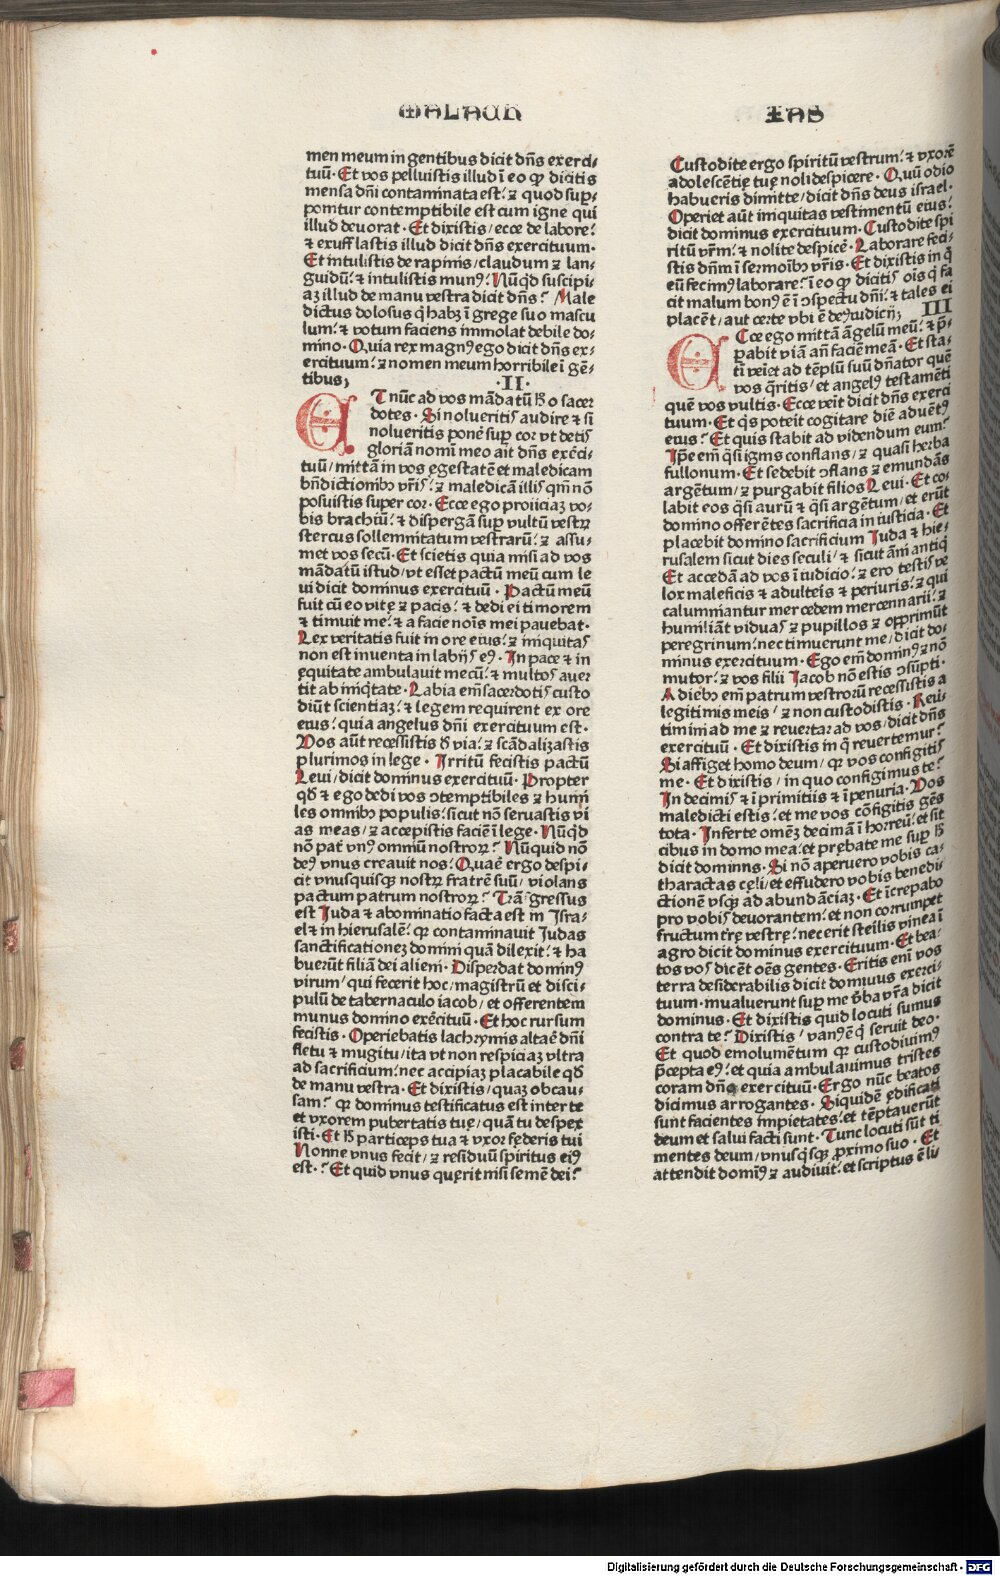 MALACH
IAS
men meum in gentibus dicit dñs exerci⸗
tuū. Et vos polluistis illud ī eo ꝙ dicitis
mensa dñi contaminata est: ⁊ quod suꝑ⸗
ponitur contemptibile est cum igne qui
illud deuorat. Et dixistis/ ecce de labore:
⁊ exufflastis illud dicit dñs exercituum.
Et intulistis de rapinis/ claudum ⁊ lan⸗
guidū: ⁊ intulistis munꝰ. Nūqd suscipi⸗
aꝫ illud de manu vestra dicit dñs? Male
dictus dolosus q̇ habꝫ ī grege suo mascu
lum: ⁊ votum faciens immolat debile do⸗
mino. Quia rex magnꝰ ego dicit dñs ex⸗
ercituum: ⁊ nomen meum horribile ī gē⸗
tibus;
.II.
ET nūc ad vos mādatū ħ o sacer
dotes. Si nolueritis audire ⁊ si
nolueritis ponē suꝑ cor vt detis
gloriā nomī meo ait dñs exēci⸗
tuū/ mittā in vos egestatē et maledicam
bn̄dictionibꝰ vr̄is: ⁊ maledicā illis qm̄ nō
posuistis super cor. Ecce ego proiiciaꝫ vo⸗
bis brachiū: ⁊ dispergā suꝑ vultū vestꝝ
stercus sollemnitatum vestrarū: ⁊ assu⸗
met vos secū. Et scietis quia misi ad vos
mādatū istud/ vt esset pactū meū cum le
ui dicit dominus exercituū. Pactū meū
fuit cū eo vitę ⁊ pacis: ⁊ dedi ei timorem
⁊ timuit me: ⁊ a facie nois mei pauebat.
Lex veritatis fuit in ore eius: ⁊ iniquitas
non est inuenta in labijs eꝰ. In pace ⁊ in
equitate ambulauit mecū: ⁊ multos auer
tit ab iniq̇tate. Labia em̄ sacerdotis custo
diūt scientiaꝫ: ⁊ legem requirent ex ore
eius: quia angelus dñi exercituum est.
Vos aūt recessistis đ via: ⁊ scādalizastis
plurimos in lege. Irritū fecistis pactū
Leui/ dicit dominus exercituū. Propter
qđ ⁊ ego dedi vos ɔtemptibiles ⁊ humi
les omnibꝰ populis: sicut nō seruastis vi
as meas/ ⁊ accepistis faciē ī lege. Nūqd
nō pat̄ vnꝰ omniū nostroꝝ? Nūquid nō
deꝰ vnus creauit nos: Quaē ergo despi⸗
cit vnusquisqꝫ nostꝝ fratrē suū/ violans
pactum patrum nostroꝝ? Trāsgressus
est Juda ⁊ abominatio facta est in Isra⸗
el ⁊ in hierusalē: qꝛ contaminauit Judas
sanctificationeꝫ domini quā dilexit: ⁊ ha
buerūt filiā dei alieni. Disperdat dominꝰ
virum/ qui fecerit hoc/ magistrū et disci⸗
pulū de tabernaculo iacob/ et offerentem
munus domino exēcituū. Et hoc rursum
fecistis. Operiebatis lachrymis altaē dñi
fletu ⁊ mugitu/ ita vt non respiciaꝫ vltra
ad sacrificium: nec accipiaꝫ placabile qđ
de manu vestra. Et dixistis/ quaꝫ ob cau⸗
sam? qꝛ dominus testificatus est inter te
et vxorem pubertatis tuę/ quā tu despex
isti. Et ħ particeps tua ⁊ vxor fęderis tui
Nonne vnus fecit/ ⁊ residuū spiritus eiꝰ
est.? Et quid vnus quęrit nisi semē dei?
Custodite ergo spiritū vestrum: ⁊ vxorē
adolescentię tuę noli despicere. Quū odio
habueris dimitte/ dicit dñs deus israel.
Operiet aūt iniquitas vestimentū eius:
dicit dominus exercituum. Custodite spi
ritū vr̄m: ⁊ nolite despicē. Laborare feci⸗
stis dñm ī sermoībꝰ vr̄is. Et dixistis in q̇
eū fecimꝰ laborare? ī eo ꝙ dicitis ois q̇ fa
cit malum bonꝰ ē ī ɔspectu dñi: ⁊ tales ei
placēt/ aut certe vbi ē deꝰ iudicij;
III
ECce ego mittā āgelū meū: ⁊ p̄⸗
parabit viā an̄ faciē meā. Et sta⸗
tī veiet ad tēplū suū dñator quē
vos q̄ritis/ et angelꝰ testamēti
quē vos vultis. Ecce veit dicit dñs exerci
tuum. Et q̇s poteit cogitare diē aduētꝰ
eius? Et quis stabit ad videndum eum?
Ip̄e em̄ q̇si ignis conflans/ ⁊ quasi herba
fullonum. Et sedebit ɔflans ⁊ emundās
argētum/ ⁊ purgabit filios Leui. Et co⸗
labit eos q̇si aurū ⁊ q̇si argētum/ et erūt
domino offerētes sacrificia in iusticia. Et
placebit domino sacrificium Juda ⁊ hie⸗
rusalem sicut dies seculi/ ⁊ sicut āni antiq̇
Et accedā ad vos ī iudicio: ⁊ ero testis ve
lox maleficis ⁊ adulteis ⁊ periuris: ⁊ qui
calumniantur mercedem mercennarii: ⁊
humiliāt viduas ⁊ pupillos ⁊ opprimūt
peregrinum: nec timuerunt me/ dicit do⸗
minus exercituum. Ego em̄ dominꝰ ⁊ nō
mutor: ⁊ vos filii Jacob nō estis ɔsūpti.
A diebꝰ em̄ patrum vestrorū recessistis a
legitimis meis/ ⁊ non custodistis. Reui⸗
timini ad me ⁊ reuertar ad vos/ dicit dñs
exercituū. Et dixistis in q̇ reuertemur?
Si affiget homo deum/ qꝛ vos configitis
me. Et dixistis/ in quo configimus te?
In decimis ⁊ ī primitiis ⁊ ī penuria. Vos
maledicti estis: et me vos cōfigitis gēs
tota. Inferte omēꝫ decimā ī horreū: et sit
cibus in domo mea: et prębate me suꝑ ħ
dicit dominns. Si nō aperuero vobis ca⸗
tharactas cęli/ et effudero vobis benedi⸗
ctionē vsqꝫ ad abundāciaꝫ. Et īcrepabo
pro vobis deuorantem: et non corrumpet
fructum tr̄ę vestrę: nec erit steilis vinea ī
agro dicit dominus exercituum. Et bea⸗
tos vos dicēt oēs gentes. Eritis enī vos
terra desiderabilis dicit domiuus exerci⸗
tuum. inualuerunt suꝑ me v̄ba vr̄a dicit
dominus. Et dixistis quid locuti sumus
contra te? Dixistis/ vanꝰ ē q̇ seruit deo.
Et quod emolumētum qꝛ custodiuimꝰ
p̄cepta eꝰ: et quia ambulauimus tristes
coram dñō exercituū. Ergo nūc beatos
dicimus arrogantes. Siquidē ędificati
sunt facientes impietates: et tēptauerūt
deum et salui facti sunt. Tunc locuti sūt ti
mentes deum/ vnusq̇sqꝫ ꝓximo suo. Et
attendit domīꝰ ⁊ audiuit: et scriptus ē li⸗
Digitalisierung gefördert durch die Deutsche Forschungsgemeinschaft - DFG